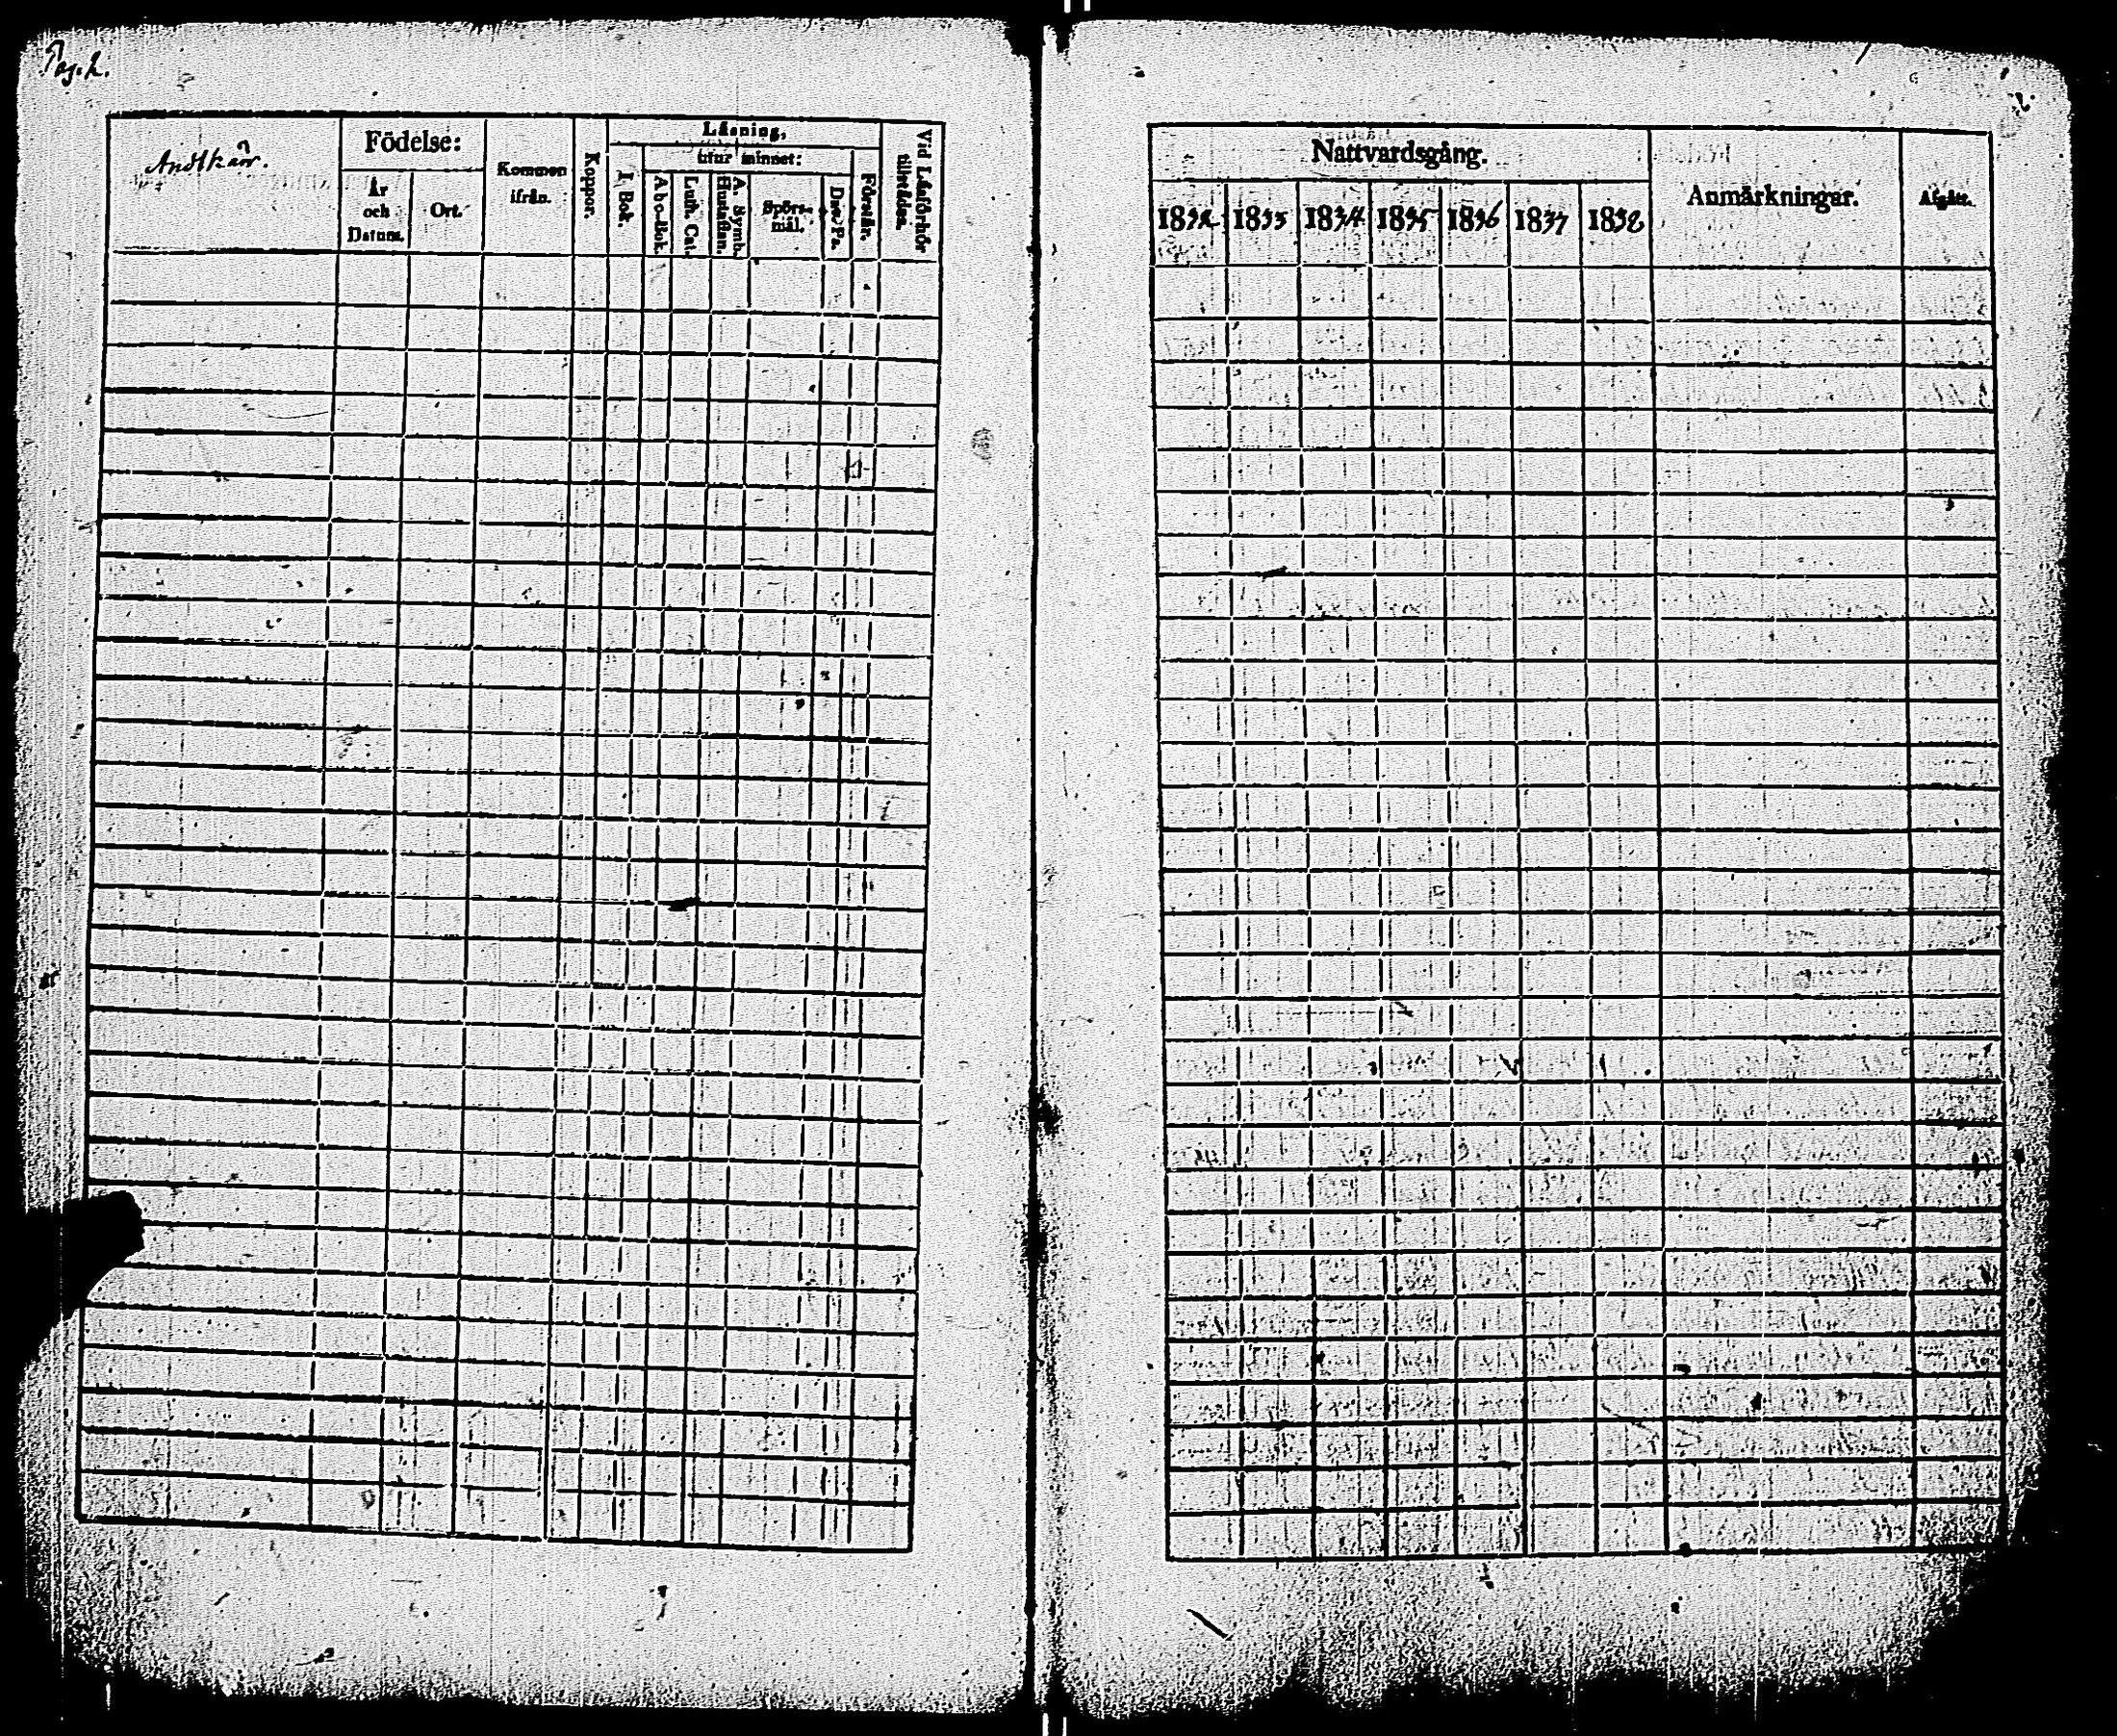 Pag. 2.
Andtkärr.
Födelse:
År och Datum.
Ort.
Kommen ifrån.
Koppor.
Läsning,
I. Bok.
utur minnet:
Abc-Bok.
Luth. Cat.
A. Symb. Hustaflan.
Spörsmål.
Dav. Ps.
Förstår.
Vid Läsförhör tillstädes.
Nattvardsgång.
1832 1833 1834 1835 1836 1837 1838
Anmärkningar.
Afgått.